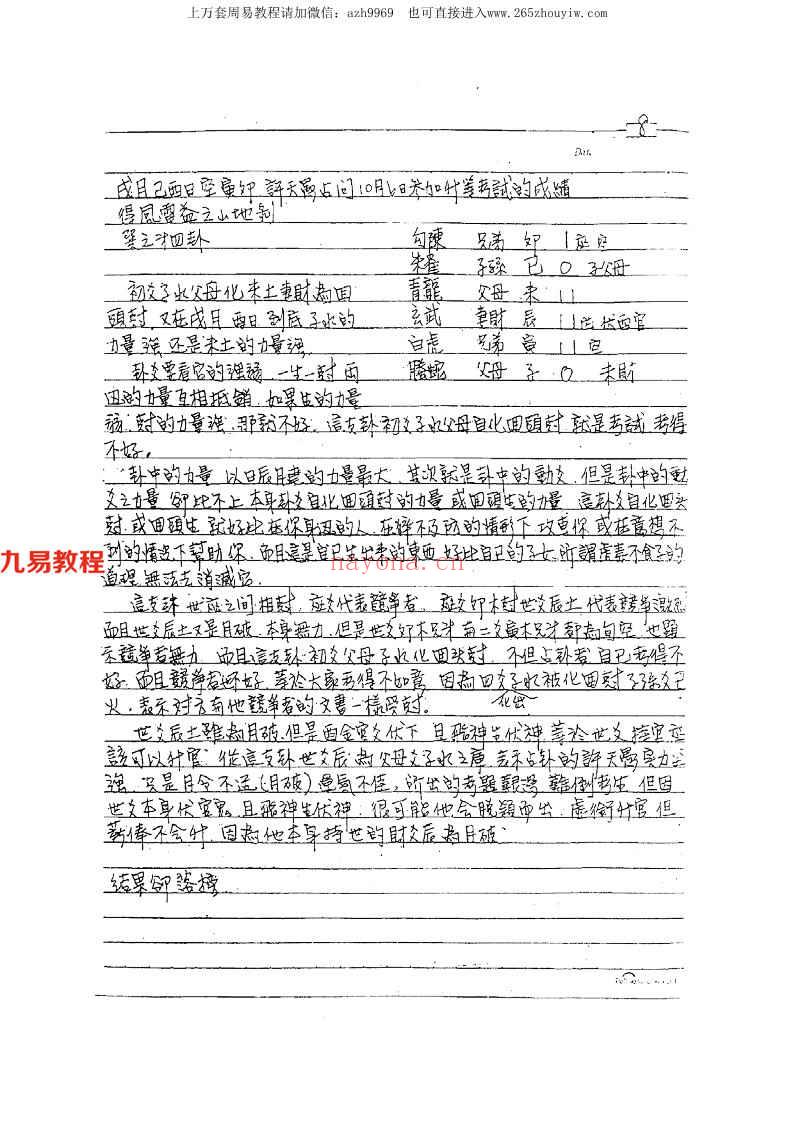 上万套周易教程请加微信：azh9969 也可直接进入www.265zhouyiw.com
8
Date
戌月己酉日空寅卯 許天 占问10月 日参加升等考試的成績
得風雷益之山地剝
巽之才四卦 勾陳 兄弟 卯 1 應空
朱雀 子孫 巳 0 子父母
初爻子水父母化未土妻財為回 青龍 父母 未 11
頭尅,又在戌月酉日,到底子水的 玄武 妻財 辰 11世伏酉官
力量强,还是未土的力量强. 白虎 兄弟 寅 11空
卦爻要看它的强弱,一生一尅 而 騰蛇 父母 子 0 未財
的力量互相抵銷,如果生的力量
弱,尅的力量强,那就不好,這支卦初爻子水父母自化回頭尅,就是考試考得
不好。
卦中的力量,以日辰月建的力量最大,其次就是卦中的動爻,但是卦中的動
爻之力量,卻比不上本身卦爻自化回頭尅的力量或回頭生的力量,這卦爻自化回头
尅或回頭生,就好比在你身边的人,在猝不及防的情形下攻擊你或在意想不
到的情况下幫助你,而且這是自己生出來的東西,好比自己的子女,所謂虎毒不食子的
道理,無法去消滅它.
這支 世應之间相尅,應爻代表競爭者,應爻卯木尅世爻辰土,代表競爭激烈
而且世爻辰土又是月破,本身無力,但是 爻卯木兄弟有二爻寅木兄弟都為旬空,也顯
示競爭者無力,而且這支卦初爻父母子水化回头尅,不但占卦者自己考得不
好,而且競爭者也不好,等於大家考得不如意,因為 爻子水被化回尅了子孫爻巳
火,表示对方有他競爭者的文書一樣受尅。
化出
世爻辰土雖為月破,但是酉金官爻伏下,且飛神生伏神,等於世爻持官应
該可以升官,從這支卦世爻辰為父母爻子水之庫,表示占卦的許天 实力
强,只是月令不运(月破)運氣不佳,所出的考題艱澀,難倒考生,但因
世爻本身伏官鬼,且飛神生伏神,很可能他会脱穎而出,虚銜升官,但
薪俸不会升,因為他本身持世的財爻辰為月破.
結果卻落榜
九易教程
hayona.cn